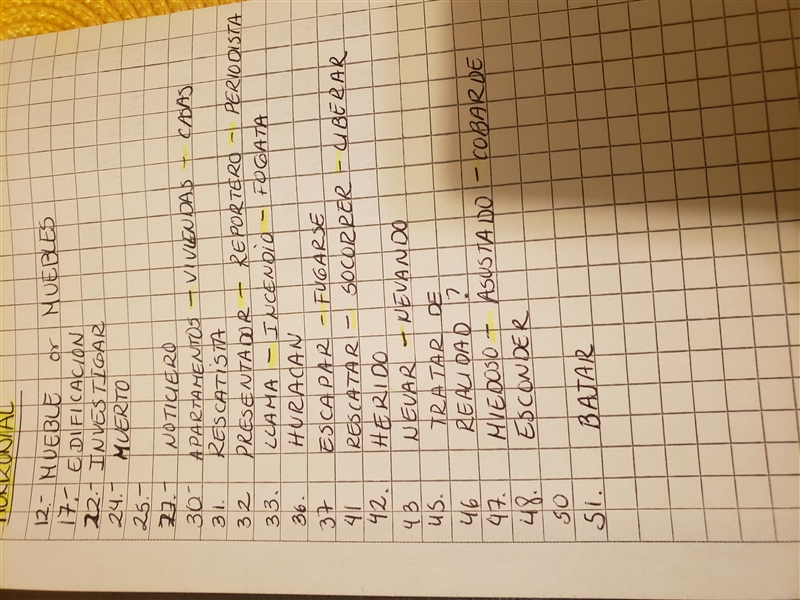 HORIZONTAL
12.- MUEBLE or MUEBLES
17.- EDIFICACION
22.- INVESTIGAR
24.- MUERTO
25.-
27.- NOTICIERO
30- APARTAMENTOS - VIVIENDAS - CASAS
31. RESCATISTA
32 PRESENTADOR - REPORTERO - PERIODISTA
33. LLAMA - INCENDIO - FOGATA
36. HURACAN
37 ESCAPAR - FUGARSE
41 RESCATAR - SOCORRER - LIBERAR
42. HERIDO
43 NEVAR - NEVANDO
45. TRATAR DE
46 REALIDAD ?
47. MIEDOSO - ASUSTADO - COBARDE
48. ESCONDER
50
51. BAJAR